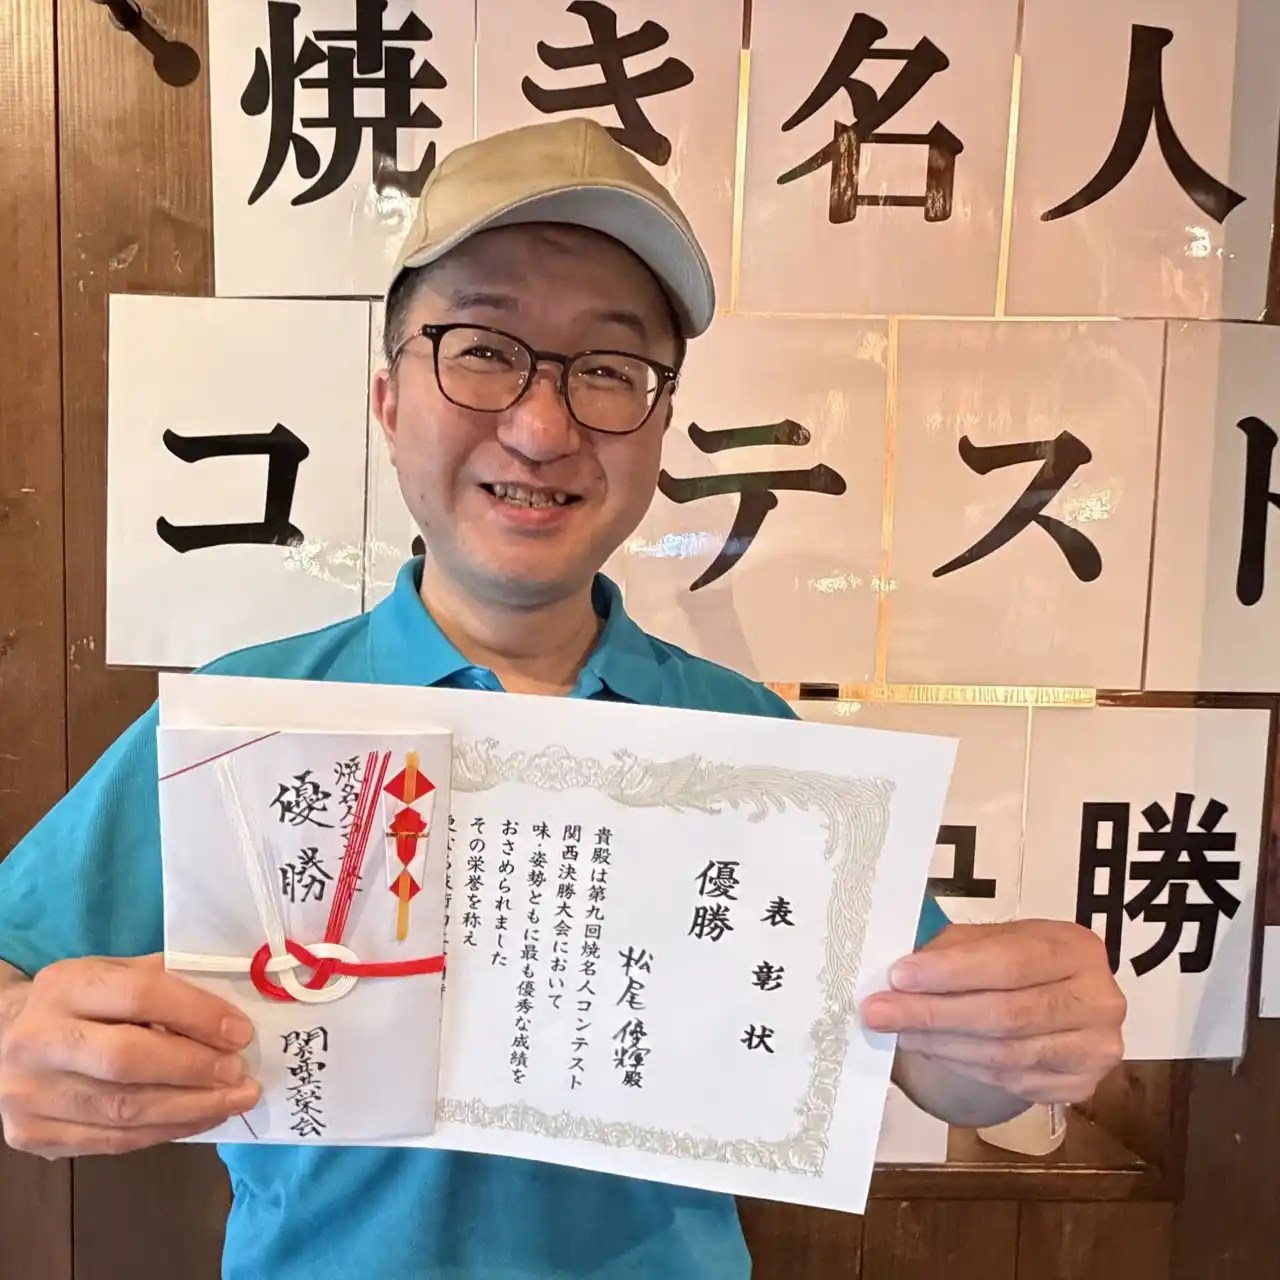 焼き名人
コンテスト
決勝
焼名人コンテスト
優勝
関雲栄会
表彰状
優勝
松尾優輝殿
貴殿は第九回焼名人コンテスト
関西決勝大会において
味・姿勢ともに最も優秀な成績を
おさめられました
その栄誉を称え